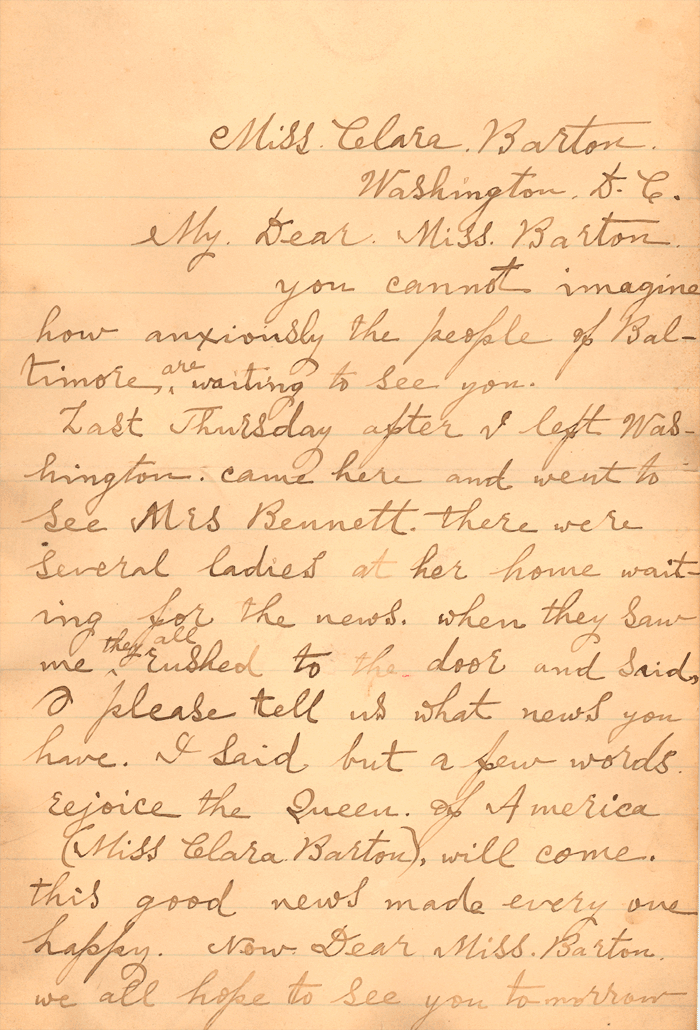 Miss. Clara. Barton.
Washington. D. C.
My. Dear. Miss. Barton.
you cannot imagine
how anxiously the people of Bal-
timore, are waiting to see you.
Last Thursday after I left Was-
hington. came here and went to
see Mrs Bennett. there were
several ladies at her home wait-
ing for the news. when they saw
me they all rushed to the door and said,
O please tell us what news you
have. I said but a few words.
rejoice the Queen. of America
(Miss Clara Barton), will come.
this good news made every one
happy. Now Dear Miss. Barton.
we all hope to see you tomorrow